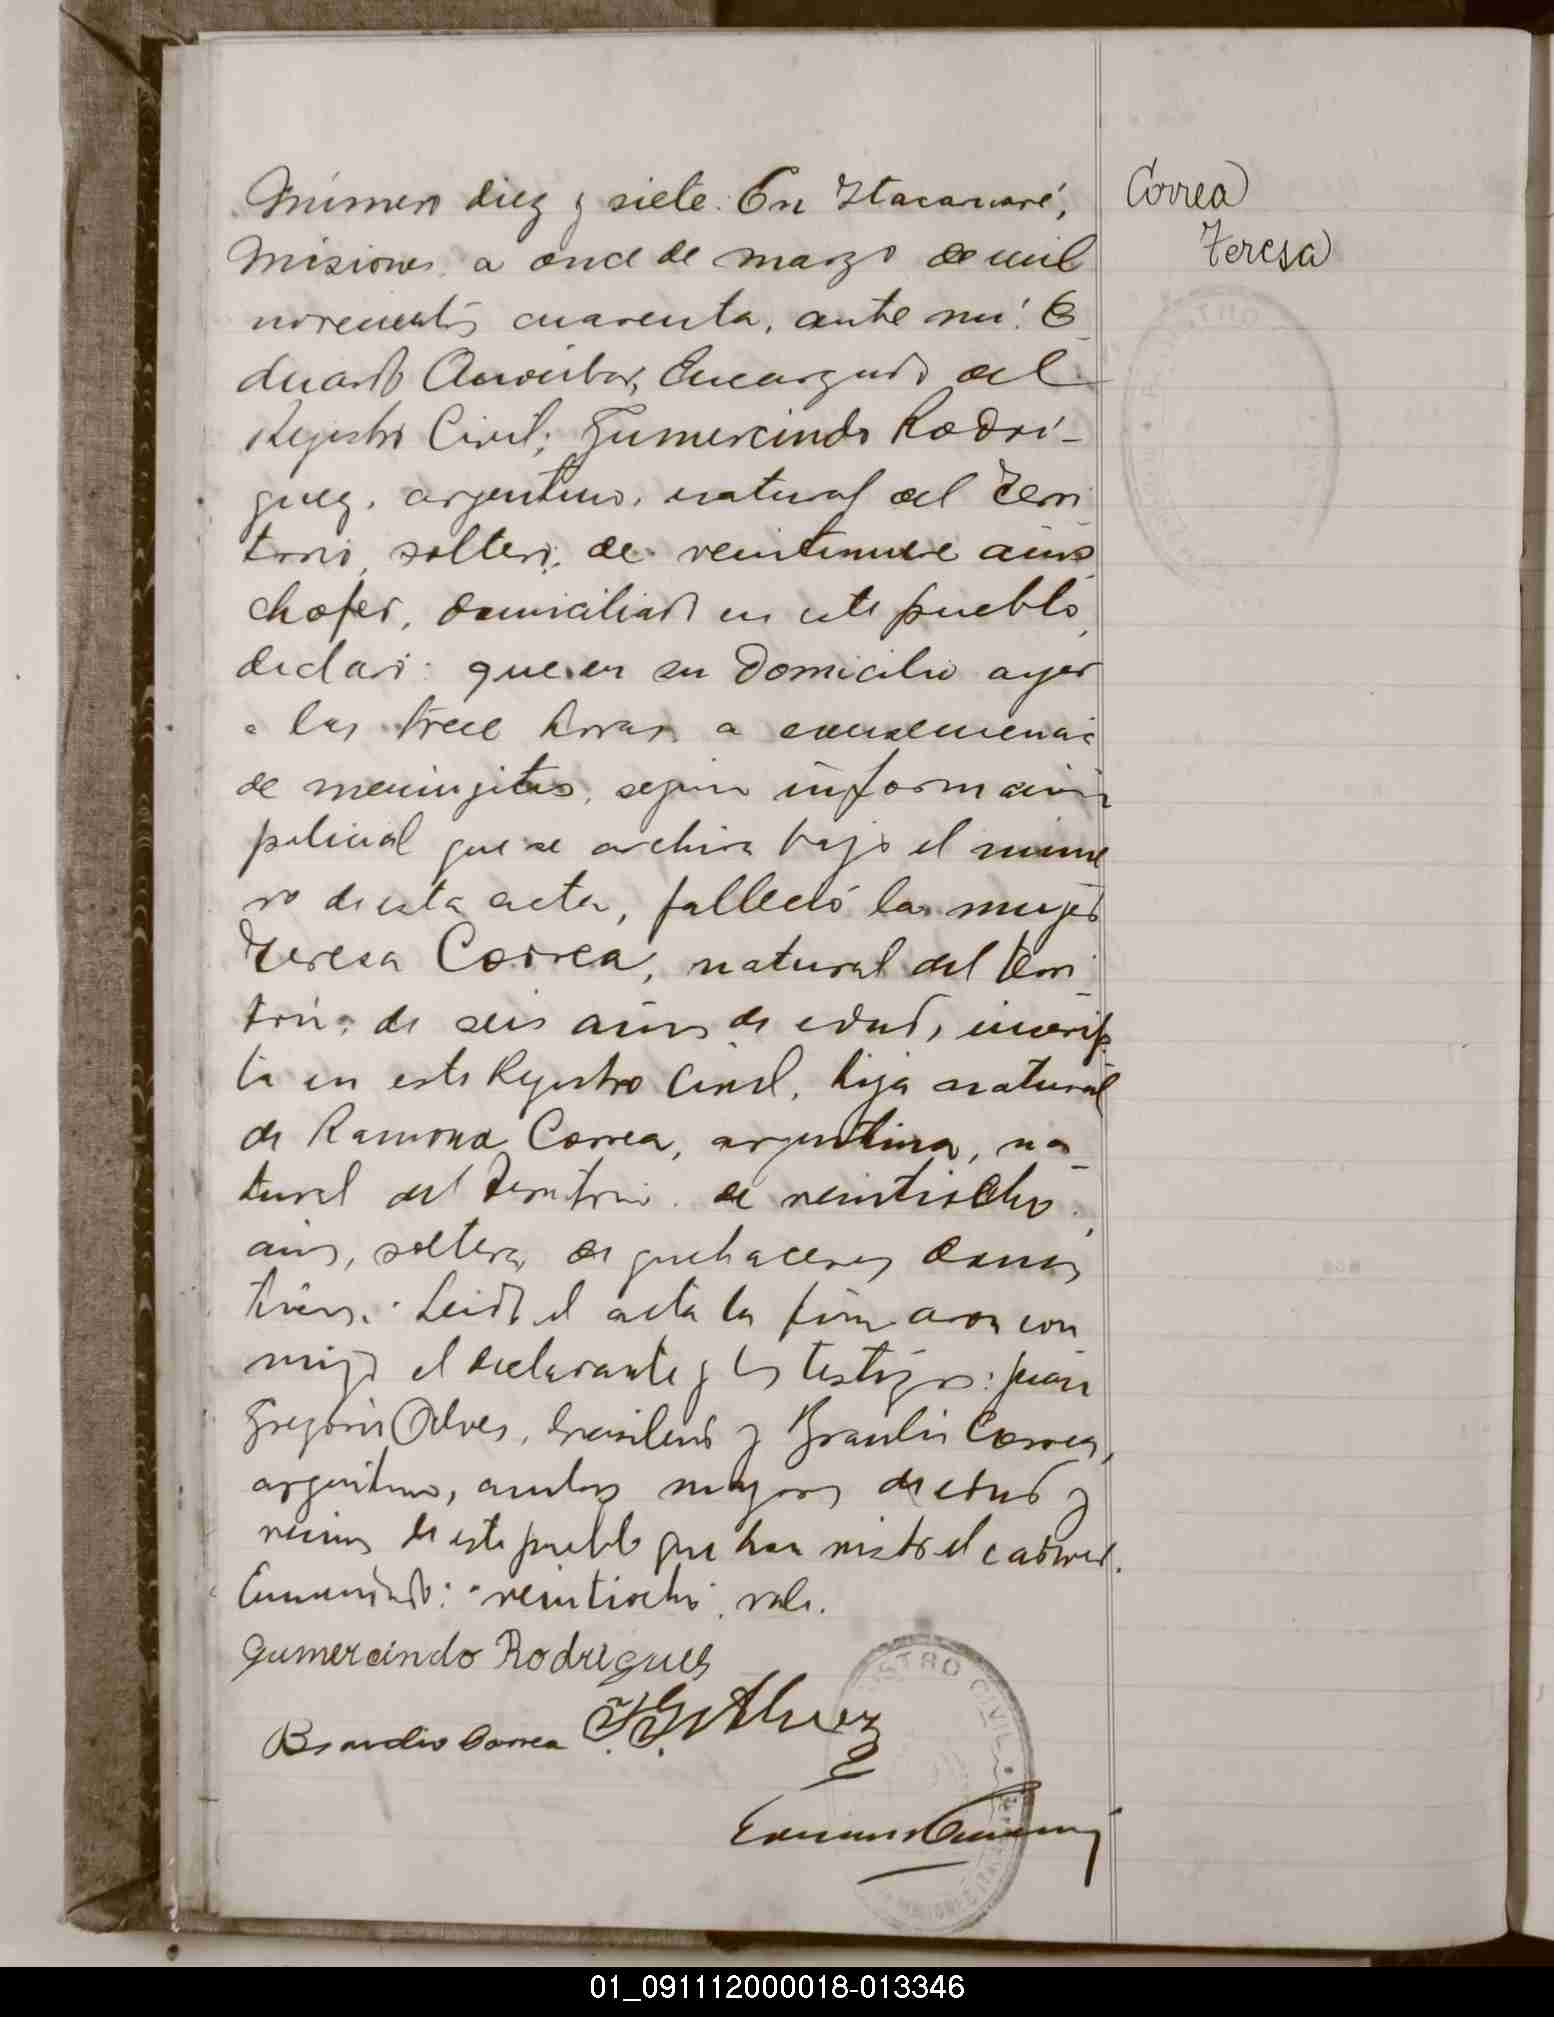 Número diez y siete. En Itacaruaré,
Correa
Teresa
Misiones, a once de marzo de mil
novecientos cuarenta, ante mí: E
duardo Encargado del
Registro Civil; Gumercindo Rodri-
guez, argentino, natural del Terri
torio, soltero, de veintinueve años
chofer, domiciliado en este pueblo,
declaró: que en su domicilio ayer
a las trece horas a consecuencia
de meningitis, según información
policial que se archiva bajo el núme
ro de esta acta, falleció la mujer
Teresa Correa, natural del Terri
torio, de seis años de edad, inscrip
ta en este Registro Civil, hija natural
de Ramona Correa, argentina, na
tural del Territorio, de veintiocho
años, soltera, de quehaceres domés
ticos. Leida el acta la firmaron con
migo el declarante y los testigos: Juan
Gregorio Alves, brasileño y Braulio Correa,
argentino, ambos mayores de edad y
vecinos de este pueblo que han visto el cadaver.
Enmendado: "veintiocho". vale.
Gumercindo Rodrigues
Braulio Correa J. G. Alvez
REGISTRO CIVIL
01_091112000018-013346